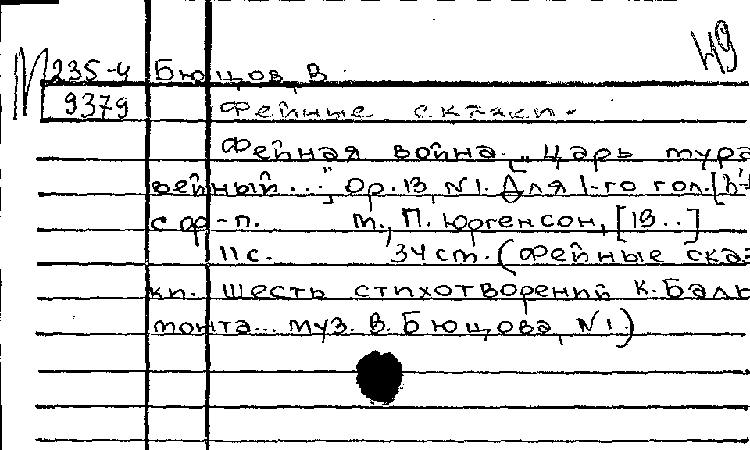 49
М 235-4 Бюцов, В.
9379 Фейные сказки.
Фейная война. "Царь мура
вейный...", Ор.13, №1. Для 1-го гол. [h'-
с ф-п. М., П. Юргенсон, [19..]
11 с. 34 см. (Фейные сказ
ки. Шесть стихотворений К. Баль
монта... муз. В. Бюцова, №1.)